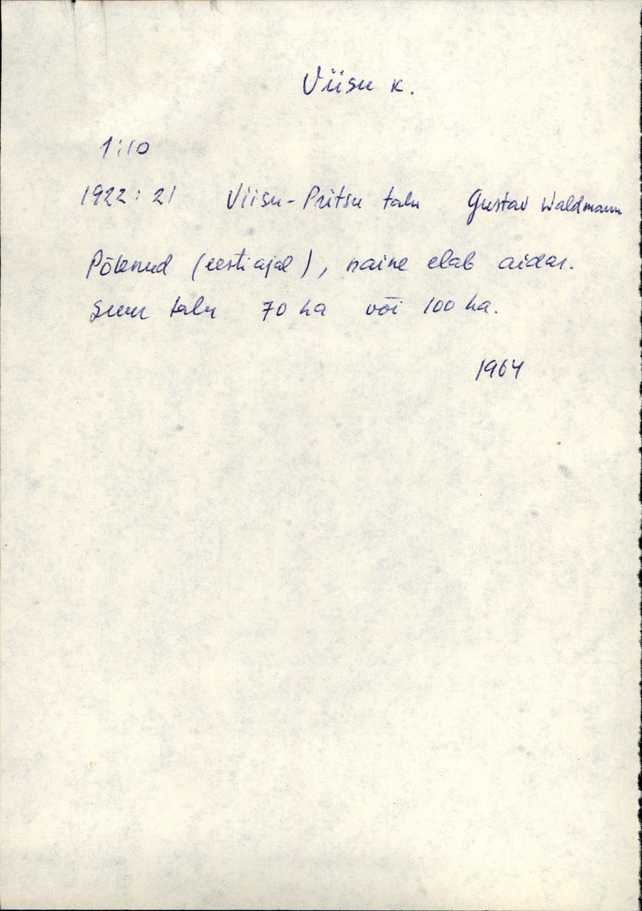 Viisu k.
1:10
1922: 21 Viisu-Pritsu talu Gustav Waldmann
Põlenud (eesti ajal), naine elab aidas.
Suur talu 70 ha või 100 ha.
1964